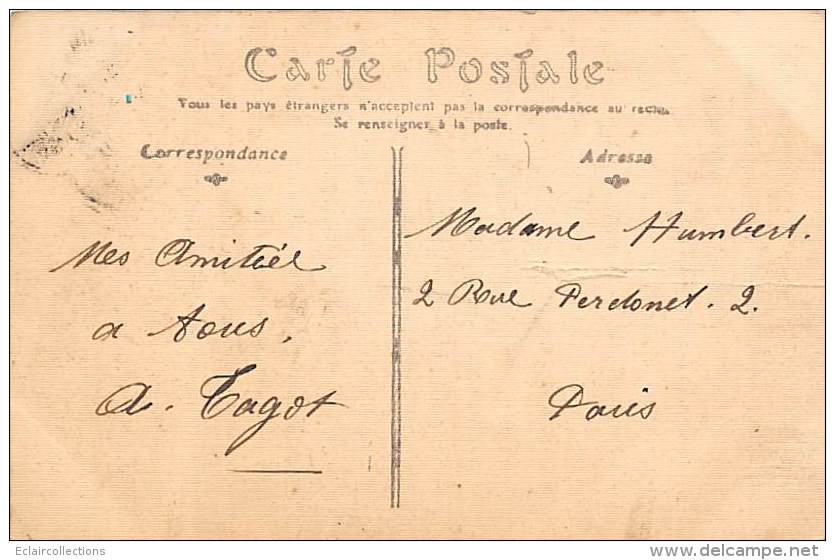 Carte Postale
Tous les pays étrangers n'acceptent pas la correspondance au recto.
Se renseigner à la poste.
Correspondance
Mes Amitiél
a tous,
A. Tagot
Adresse
Madame Humbert.
2 Rue Perdonet. 2.
Paris
Eclaircollections
www.delcampe.net